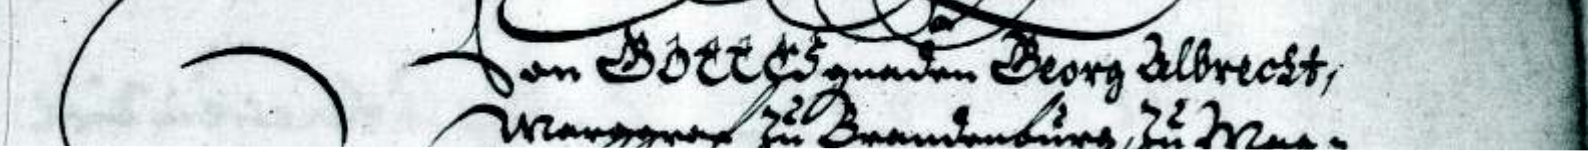 Von GOTTES gnaden Georg Albrecht,
Marggraf zu Brandenburg, zu Mag-